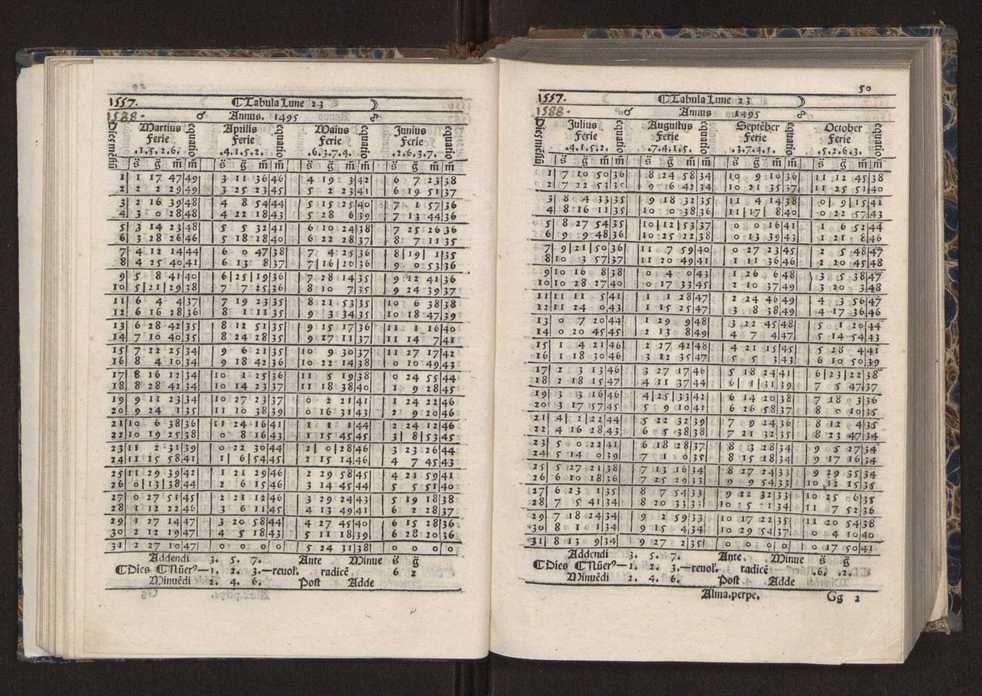 1557.
Tabula Lune 23
1588
Annus. 1495
Dierum
Martius equatio Aprilis equatio Maius equatio Junius equatio
Ferie Ferie Ferie Ferie
.1.5.2.6. .4.1.5.2. .6.3.7.4. .2.6.3.7.
1 1 17 47 49 3 11 36 46 4 19 3 42 6 7 23 38
2 2 2 29 49 3 25 23 45 5 2 23 41 6 19 51 37
3 2 16 39 48 4 8 54 44 5 15 25 40 7 1 57 36
4 3 0 28 48 4 22 18 43 5 28 6 39 7 13 44 36
5 3 14 23 48 5 5 32 41 6 10 24 38 7 25 26 36
6 3 28 26 46 5 18 28 40 6 22 28 37 8 7 11 35
7 4 12 14 44 6 0 47 38 7 4 25 36 8 19 1 35
8 4 25 40 41 6 13 8 37 7 16 20 36 9 0 53 36
9 5 8 41 40 6 25 19 36 7 28 14 35 9 12 41 36
10 5 21 29 38 7 7 25 36 8 10 7 35 9 24 39 37
11 6 4 4 37 7 19 23 35 8 21 53 35 10 6 38 38
12 6 16 28 36 8 1 11 35 9 3 34 35 10 18 47 39
13 6 28 42 35 8 12 51 35 9 15 17 36 11 1 16 40
14 7 10 40 35 8 24 28 35 9 27 11 37 11 14 7 41
15 7 22 25 34 9 6 21 35 10 9 30 37 11 27 17 42
16 8 4 10 34 9 18 42 36 10 22 14 38 0 10 49 43
17 8 16 12 34 10 1 25 36 11 5 19 38 0 24 55 44
18 8 28 42 34 10 14 23 37 11 18 38 40 1 9 28 45
19 9 11 23 34 10 27 23 37 0 2 21 41 1 24 22 46
20 9 24 1 35 11 10 38 39 0 16 31 43 2 9 20 46
21 10 6 38 36 11 24 16 41 1 1 1 44 2 24 12 46
22 10 19 25 38 0 8 16 43 1 15 45 45 3 8 53 45
23 11 2 31 39 0 22 30 44 2 0 28 46 3 23 26 44
24 11 15 58 41 1 6 54 45 2 15 14 46 4 7 45 43
25 11 29 39 42 1 21 29 46 2 29 58 45 4 21 59 41
26 0 13 38 44 2 6 15 46 3 14 45 44 5 5 51 40
27 0 27 51 45 2 21 12 46 3 29 24 43 5 19 18 38
28 1 12 22 46 3 6 11 45 4 13 49 41 6 2 28 37
29 1 27 14 47 3 20 58 44 4 27 45 40 6 15 28 36
30 2 12 19 47 4 5 18 43 5 11 18 39 6 28 20 36
31 2 27 10 47 0 0 0 0 5 24 31 38 0 0 0 0
Addendi 3. 5. 7. Ante. Minue
Dies Nuer 1. 2. 3. revol. radicē 6 2
Minuēdi 2. 4. 6. Post Adde
50
1557.
Tabula Lune 23
1588
Annus 1495
Julius equatio Augustus equatio Septēber equatio October equatio
Ferie Ferie Ferie Ferie
.4.1.5.2. .7.4.1.5. .3.7.4.1. .5.2.6.3.
1 7 10 50 36 8 24 58 34 10 9 10 36 11 12 45 38
2 7 22 51 36 9 16 42 34 10 21 35 37 11 25 51 40
3 8 4 33 35 9 18 32 35 11 4 14 38 0 9 15 41
4 8 16 11 35 10 0 38 36 11 17 8 40 0 22 57 43
5 8 27 54 35 10 12 53 37 0 0 16 41 1 6 52 44
6 9 9 48 36 10 25 22 38 0 13 39 43 1 21 8 46
7 9 21 50 36 11 7 59 40 0 27 23 45 2 5 48 47
8 10 3 57 37 11 20 49 41 1 11 36 46 2 20 45 48
9 10 16 8 38 0 4 0 43 1 26 6 48 3 5 38 47
10 10 28 27 40 0 17 33 45 2 10 37 49 3 20 3 48
11 11 11 5 41 1 1 28 47 2 24 46 49 4 3 56 47
12 11 24 0 43 1 15 25 47 3 8 38 49 4 17 36 46
13 0 7 20 44 1 29 9 48 3 22 45 48 5 1 20 44
14 0 20 45 45 2 13 8 49 4 7 4 47 5 14 54 43
15 1 4 21 46 2 27 42 48 4 21 15 45 5 28 4 41
16 1 18 30 46 3 12 35 47 5 5 3 43 6 10 50 39
17 2 3 13 46 3 27 17 46 5 18 24 41 6 23 22 38
18 2 18 15 47 4 11 37 44 6 1 31 39 7 5 47 37
19 3 3 16 46 4 25 33 42 6 14 20 38 7 18 3 36
20 3 17 57 45 5 9 10 41 6 26 58 37 8 0 10 35
21 4 2 22 44 5 22 32 39 7 9 24 36 8 12 4 35
22 4 16 28 43 6 5 38 38 7 21 32 35 8 23 47 34
23 5 0 22 41 6 18 28 37 8 3 28 34 9 5 27 34
24 5 14 0 39 7 1 0 35 8 15 18 34 9 17 16 34
25 5 27 21 38 7 13 16 34 8 27 24 33 9 29 35 34
26 6 10 18 36 7 25 29 13 9 9 54 33 10 12 15 35
27 6 23 1 35 8 7 54 33 9 22 32 33 10 25 0 35
28 7 5 41 34 8 20 33 33 10 5 1 34 11 7 52 36
29 7 18 24 34 9 2 59 33 10 17 22 35 11 20 54 38
30 8 1 1 34 9 15 4 34 10 29 54 36 0 4 10 40
31 8 13 9 34 9 27 2 35 0 0 0 0 0 17 50 41
Addendi 3. 5. 7. Ante. Minue
Dies Nuer 1. 2. 3. revol. radicē .6. .2.
Minuēdi 2. 4. 6. Post Adde
Alma. perpe. Gg 2